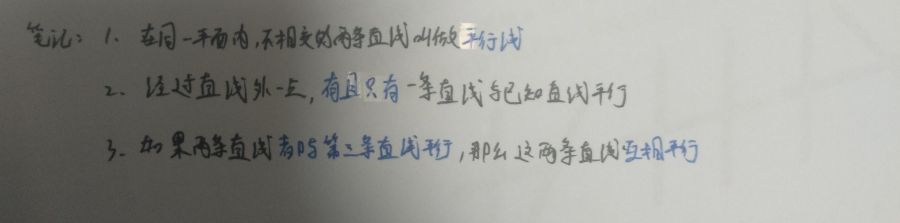 笔记: 1. 在同一平面内,不相交的两条直线叫做平行线
2. 经过直线外一点,有且只有一条直线与已知直线平行
3. 如果两条直线都与第三条直线平行,那么这两条直线互相平行